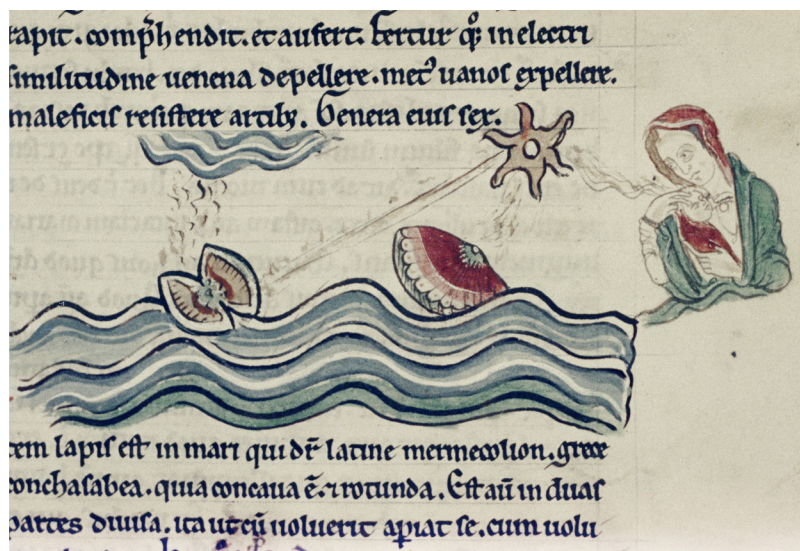 rapit. comp̄hendit. et aufert. Fertur qͦꝫ in electri
similitudine uenena depellere. metꝰ uanos expellere.
maleficis resistere artibꝫ. Genera eius sex.
tem lapis est in mari qui dr̄ latine mermecolion. grece
conchasabea. quia concaua ē. ⁊ rotunda. Est aū in duas
partes diuisa. ita ut cū uoluerit apiat se. cum uolu